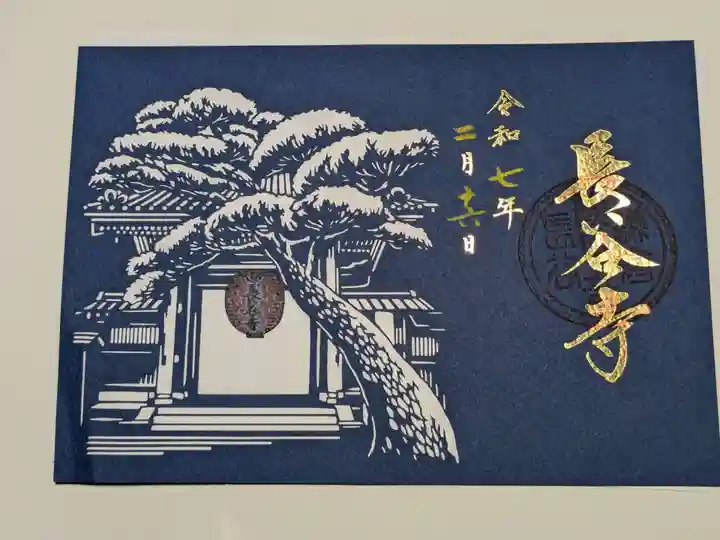 長谷寺
令和七年
二月十六日
長谷寺